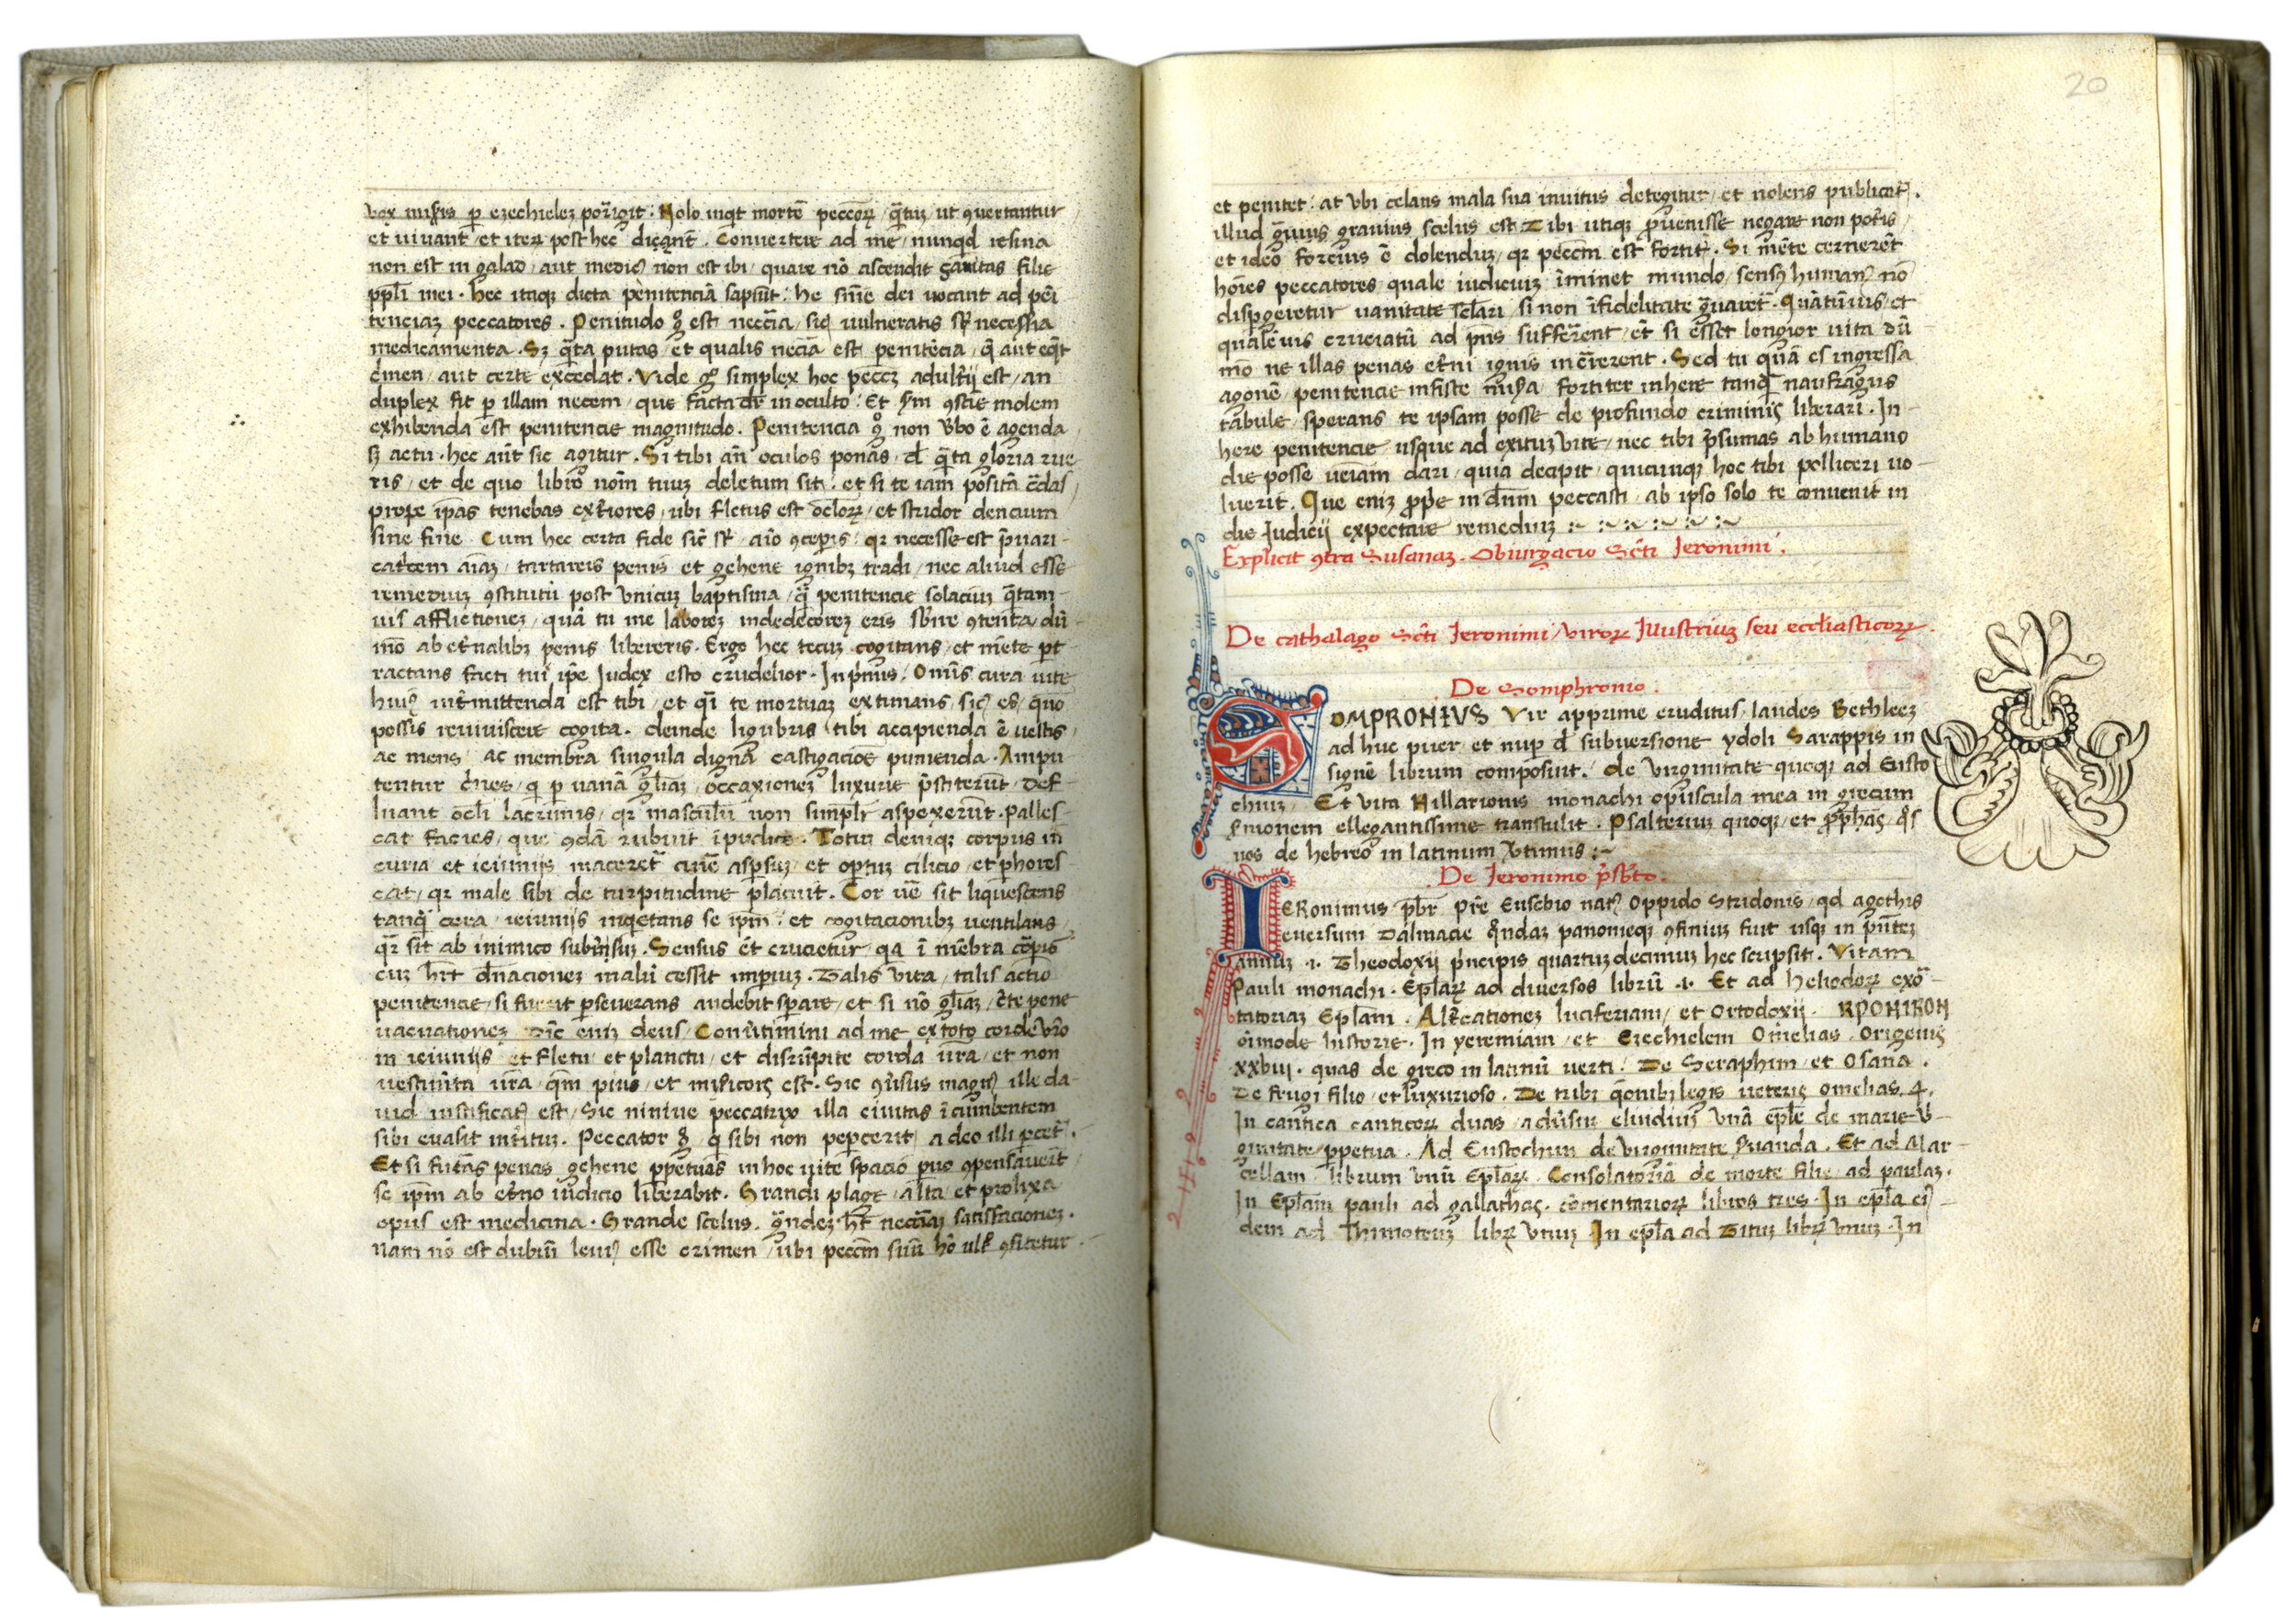 vox mīsis p ezechielez porrigit : Nolo inqt mortē peccorꝝ / q̄tuz ut ꝯuertantur
et uiuant / et iterꝝ post hec dicant̄ . Conuertere ad me / nunqd resina
non est in galad / aut medicꝰ non est ibi / quare nō ascendit sanitas filie
ppl̄i mei . hec itaqꝫ dicta penitenciā sapiūt : he sn̄ie dei uocant ad pēi
tenciaz peccatores . Penitudo gͦ est neccīa / sicꝰ uulneratis st̄ necessia
medicamenta . Sꝫ q̄ta putas / et qualis neciā est penitēcia / q̄ aut eq̄t
c̄men / aut certe excedat . Vide gͦ simplex hoc peccꝫ adult̄ij est / an
duplex fit p illam necem / que facta dr̄ in oculto : Et ꝯscie molem
exhibenda est penitencie magnitudo . Penitencia gͦ non v̄bo ē agenda
sꝫ actu . hec aūt sic agitur . Si tibi an̄ oculos ponas / d̄ q̄ta gloria rue
ris / et de quo libro nom̄ tuuz deletum sit : et si te iam positā c̄das /
prope ip̄as tenebas ext̄iores / ubi fletus est oclōꝝ / et stridor dencium
sine fine . Cum hec certa fide sic̄ st̄ / aīo ꝯceperis : qꝛ necesse est p̄uari
cat̄cem aīaz / tartareis penis et gehene ignibꝫ tradi / nec aliud esse
remediuz ꝯstitutū post vnicuz baptisma / q̄ penitencie solaciuz q̄tam
uis afflictionez / quā tu me laborez indedecorez eris sb̄ire ꝯtenta / dū
mō ab et̄nalibꝫ penis libereris . Ergo hec tecuz cogitans / et mēte pt
ractans facti tui ip̄e Judex esto crudelior . Inpmus / Omīs cura uite
huiꝰ int̄mittenda est tibi / et q̄i te mortuaz extimans / sicꝰ es / quo
possis reuiuiscere cogita . deinde ligubris tibi accipienda ē uestis /
ac mens / ac membra singula dignā castigacioē punienda . Ampu
tentur c̄nes / q p uanā gl̄iaz / occaxionez luxurie p̄stiterūt / Def
luant ocl̄i lacrimis / qꝛ masculū non simpl̄r aspexerūt . Palles
cat facies / que ꝯdā rubuit īpudice . Totū deniqꝫ corpus in
curia et ieiunijs maceret̄ cinē aspsuꝫ / et optuz cilicio / et phores
cat / qꝛ male sibi de turpitudine placuit . Cor uē sit liquescens
tanq̄ cera / ieiunijs inqetans se ip̄m : et cogitacionibꝫ uentilans /
q̄r sit ab inimico subūsuz . Sensus ēt crucietur / qa ī mēbra cꝑis
cuz hr̄t dn̄acionez malū cessit imperiuz . Talis vita / talis actio
penitencie / si fuerit perseuerans audebit sperare / et si nō gl̄iaz / c̄te pene
uacuationez . Dic̄ eniz deus / Conūtimini ad me ex toto corde vr̄o
in ieiunijs et fletu / et planctu / et disrūpite corda ūra / et non
uestimīta ūra / qm̄ pius / et miscors est . Sic ꝯuersus magꝰ ille da-
uid iustificatꝰ est / Sic niniue peccatrix illa ciuitas īcumbentem
sibi euasit inītituz . Peccator gͦ q̄ sibi non pepercerit / a deo illi pcet̄ .
Et si futūas penas gehene ppetuas in hoc uite spacio puo ꝯpensauerit /
se ip̄m ab et̄no iudicio liberabit . Grandi plage / alta et prolixa
opus est medicina . Grande scelus . g̅ndez hr̄t neccīaꝫ satisfacionez .
nam nō est dubiū leuiꝰ esse crimen / ubi peccm̄ suū hō ult̄ ꝯfitetur .
et penitet : at vbi celans mala sua inuitus detegitur / et nolens publicat̄ .
illud ḡuius grauius scelus est Tibi utiqꝫ puenisse negare non potis /
et ideo forcius ē dolenduz / qꝛ peccm̄ est fortiꝰ . Si mēte cernerēt
hoīes peccatores / quale iudiciuz īminet mundo / sensꝰ humanꝰ nō
dispgeretur uanitate sclari / si non īfidelitate ḡuaret̄ . Quātūuis / et
qualēuis cruciatū ad pn̄s sufferent / ēt si esset longior uita dū
mō ne illas penas et̄ni ignis incīerent . Sed tu quā es ingressa
agonē / penitencie insiste misa / fortiter inhere tanq̄ naufragus
tabule / sperans te ipsam posse de profundo criminis liberari . In-
here penitencie usque ad exituz vite / nec tibi p̄sumas ab humano
die posse ueniam dari / quia decipit / quicunqꝫ hoc tibi polliceri uo-
luerit . Que eniz ppe in dn̄m peccasti / ab ipso solo te conuenit in
die Judicij expectare remediuz :~ :~ :~ :~ :~
Explicit ꝯtra Susanaz . Obiurgacio Scti Jeronimi .
De cathalago Scti Jeronimi / virorꝝ Illustriuz seu eccliasticorꝝ .
De Somphronio .
SOMPRONIVS Vir apprime eruditus / laudes Bethleez
ad huc puer / et nup d̄ subuersione ydoli Sarappis in
signē librum composuit . de virginitate quoqꝫ ad Eusto
chiuz / Et vita Hillarionis monachi opuscula mea in grecum
sermonem ellegantissime transtulit . Psalteriuz quoqꝫ / et pphas / q̄s
nos de hebreo in latinum v̄timus :~
De Jeronimo p̄sbto .
IERonimus pb̄r Pr̄e Eusebio natꝰ Oppido Stridonis / qd agothis
euersum Dalmacie q̄ndaz panonieqꝫ ꝯfiniuz fuit usqꝫ in p̄ntez
annuz .i. Theodoxij p̄ncipis quartuzdecimuz hec scripsit . Vitam
Pauli monachi . Epl̄arꝝ ad diuersos librū .i. Et ad heliodorꝝ exō-
tatoriaz Epl̄am . Alt̄cationez luciferiani / et Ortodoxij . RPONIRON
oīmode historie . In yeremiam / et Ezechielem Omelias Origenis
xxbiij . quas de greco in latinū uerti . De Seraphim / et Osana .
De frugi filio / et luxurioso . De tribꝫ q̄onibꝫ legis ueteris omelias .4.
In cantica canticorꝝ duas / adūsuz eluidiuz vnā ep̄le de marie v-
ginitate ppetua . Ad Eustochium de virginitate ſuanda . Et ad Mar-
cellam librum vnū Epl̄arꝝ . Consolatoriā de morte filie / ad paulaz .
In Epl̄am pauli ad gallathas . cōmentariorꝝ libros tres . In epl̄a eiꝰ-
dem ad Thimoteuz librꝝ vnuz In epl̄a ad Tituz librꝝ vnuz . In
20